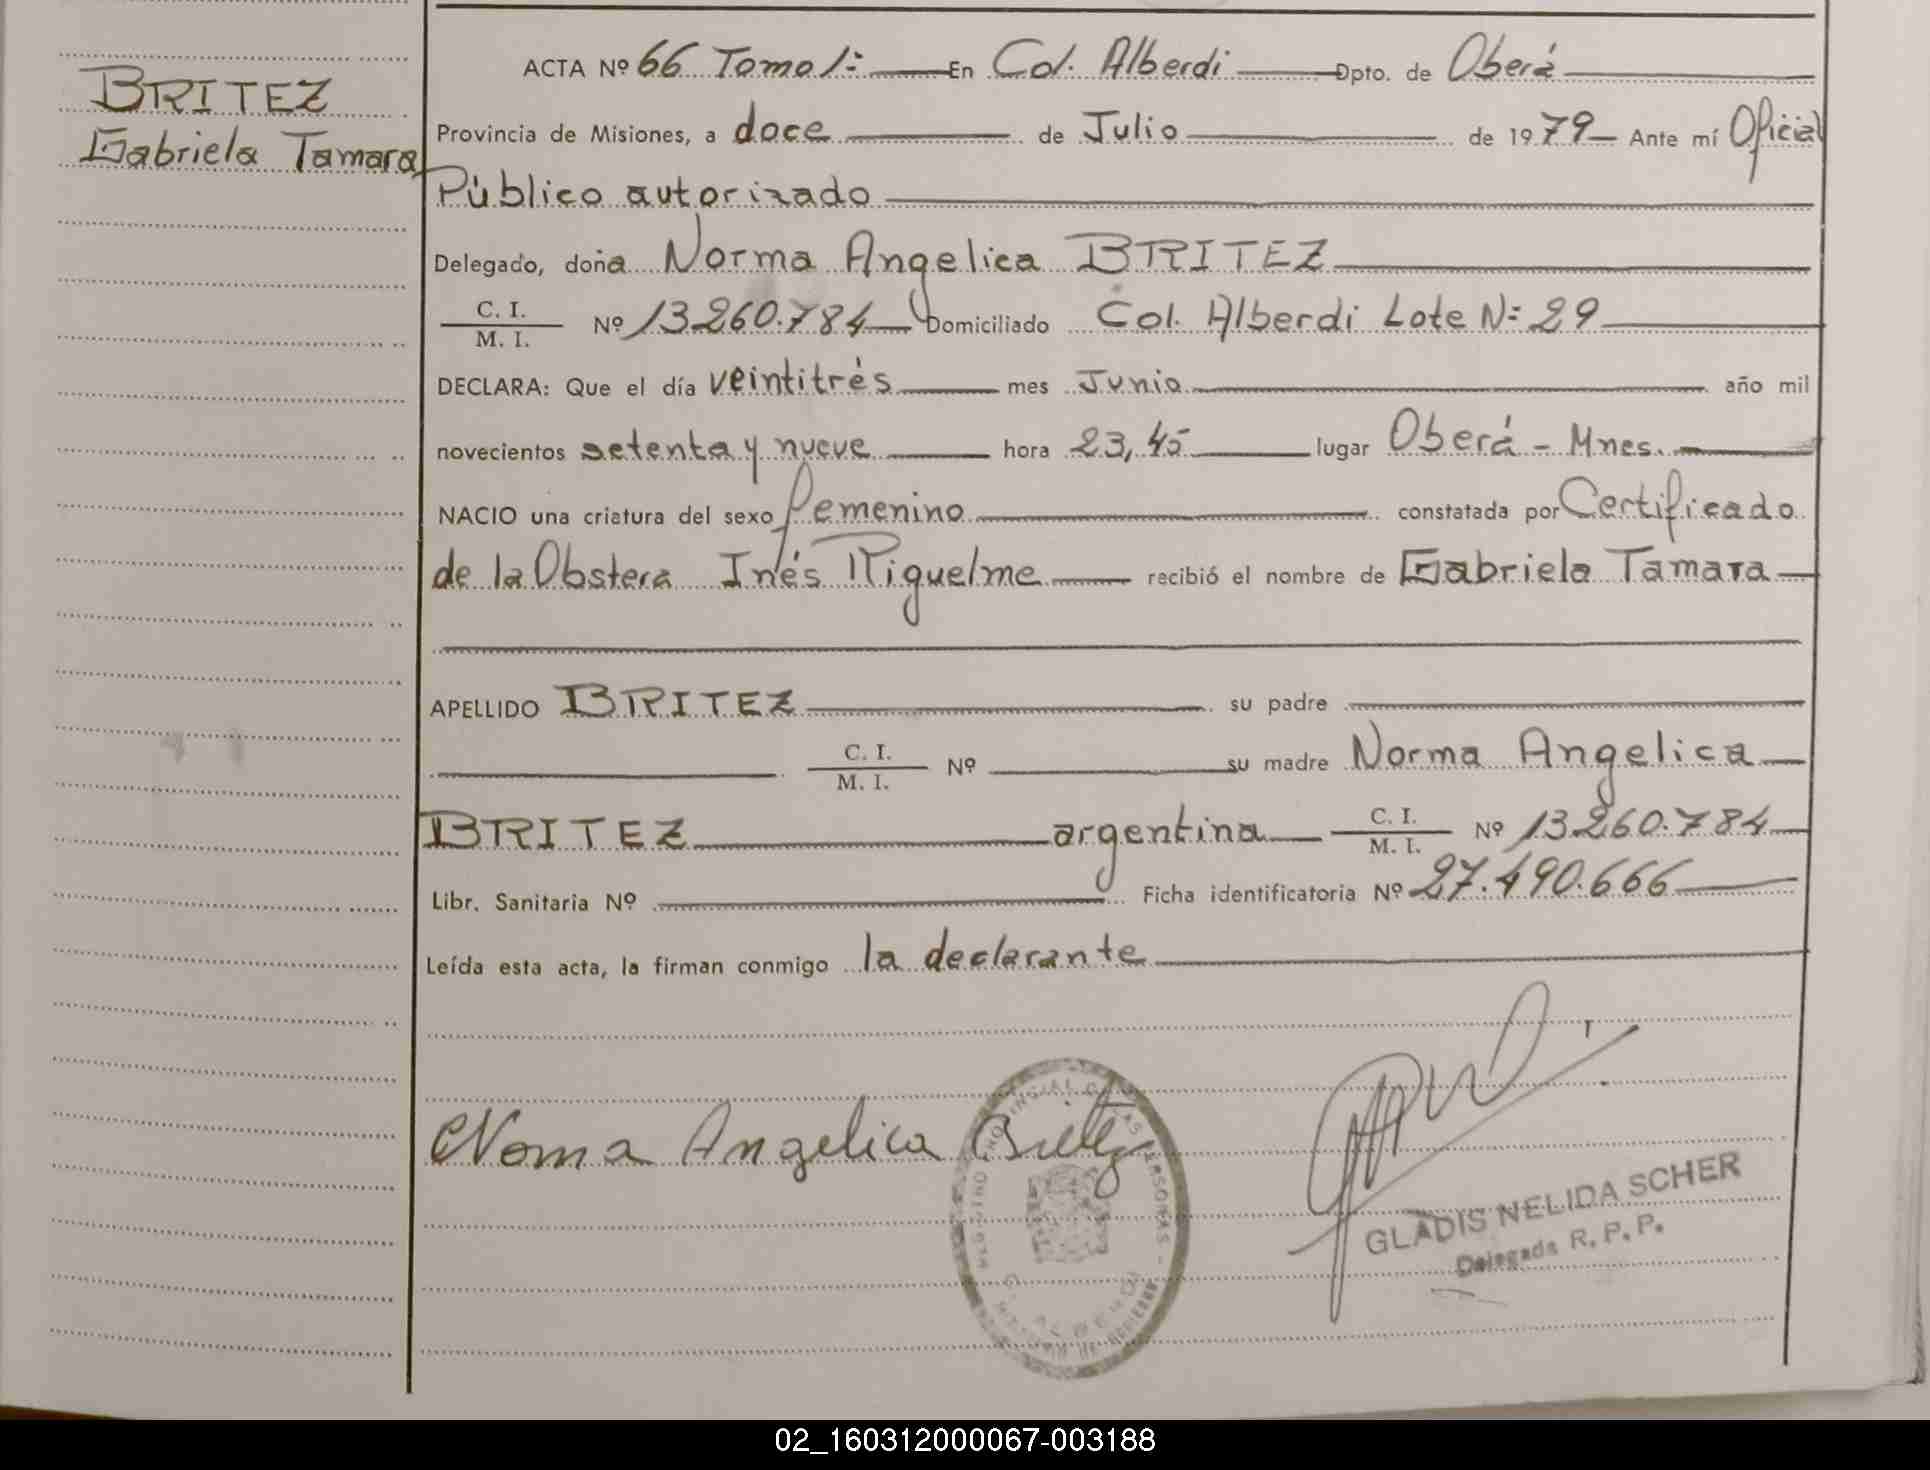 BRITEZ
Gabriela Tamara
ACTA Nº 66 Tomo 1:- En Col. Alberdi Dpto. de Oberá
Provincia de Misiones, a doce de Julio de 1979 Ante mí Oficial
Público autorizado
Delegado, doña Norma Angelica BRITEZ
C. I.
M. I. Nº 13.260.784 Domiciliado Col. Alberdi Lote Nº 29
DECLARA: Que el día veintitrés mes Junio año mil
novecientos setenta y nueve hora 23,45 lugar Oberá - Mnes.
NACIO una criatura del sexo femenino constatada por Certificado
de la Obstera Inés Riguelme recibió el nombre de Gabriela Tamara
APELLIDO BRITEZ su padre
C. I.
M. I. Nº su madre Norma Angelica
BRITEZ argentina C. I.
M. I. Nº 13.260.784
Libr. Sanitaria Nº Ficha identificatoria Nº 27.490.666
Leída esta acta, la firman conmigo la declarante
Norma Angelica Britez
GLADIS NELIDA SCHER
Delegada R. P. P.
02_160312000067-003188